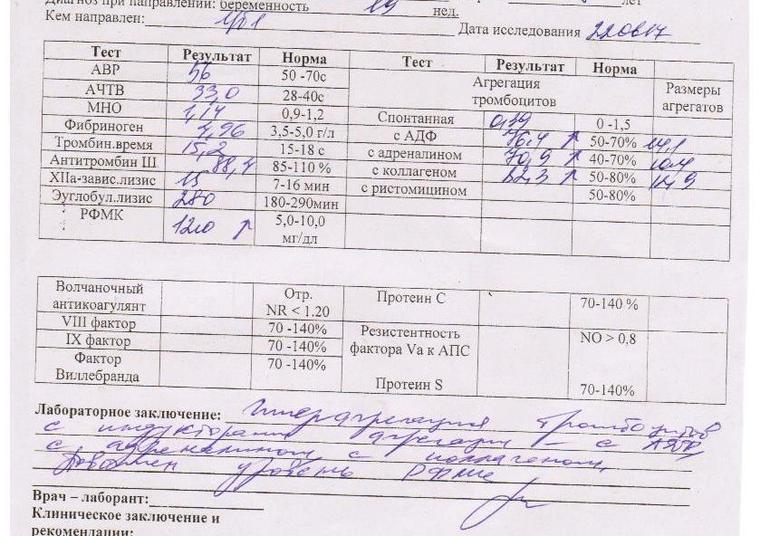 Диагноз при направлении: беременность 29 нед. лет
Кем направлен: Дата исследования 220817
Тест Результат Норма Тест Результат Норма Размеры агрегатов
АВР 56 50 -70с Агрегация тромбоцитов
АЧТВ 33,0 28-40с
МНО 1,14 0,9-1,2 Спонтанная 0,99 0 -1,5
Фибриноген 4,96 3,5-5,0 г/л с АДФ 76,4 ↗ 50-70% 14,1
Тромбин.время 15,2 15-18 с с адреналином 70,9 ↗ 40-70% 10,4
Антитромбин III 88,4 85-110 % с коллагеном 82,3 ↗ 50-80% 14,9
XIIа-завис.лизис 15 7-16 мин с ристомицином 50-80%
Эуглобул.лизис 280 180-290мин
РФМК 12,0 ↗ 5,0-10,0 мг/дл
Волчаночный антикоагулянт Отр. NR < 1.20 Протеин С 70-140 %
VIII фактор 70 -140% Резистентность фактора Va к АПС NO > 0,8
IX фактор 70 -140%
Фактор Виллебранда 70 -140% Протеин S 70-140%
Лабораторное заключение: Гиперагрегация тромбоцитов
с индукторами агрегации – с АДФ,
с адреналином, с коллагеном,
Повышен уровень РФМК
Врач – лаборант:
Клиническое заключение и
рекомендации: